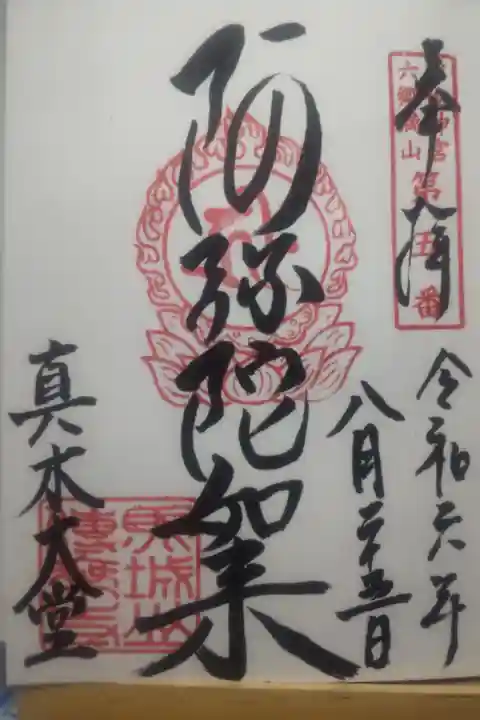 奉拝
六郷満山
第五番
令和六年
八月二十五日
阿弥陀如来
真木大堂
馬城山